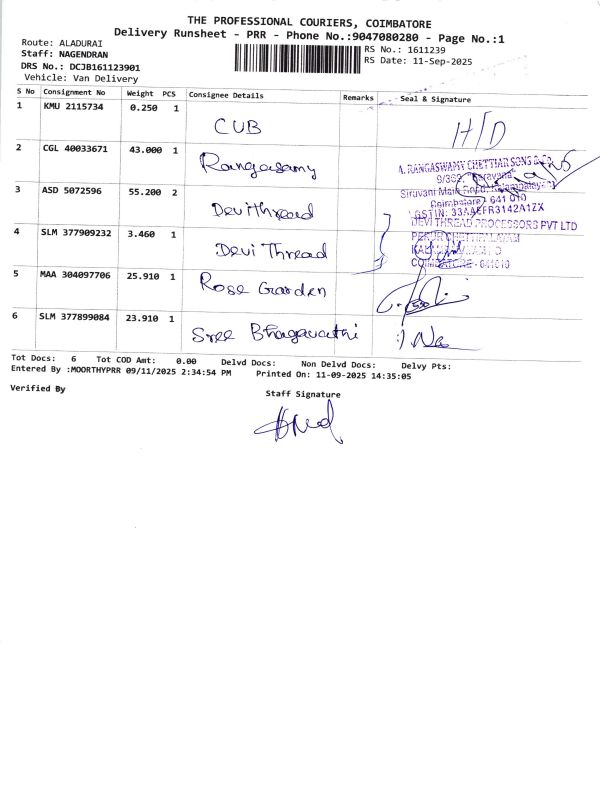 THE PROFESSIONAL COURIERS, COIMBATORE
Delivery Runsheet - PRR - Phone No.:9047080280 - Page No.:1
Route: ALADURAI
RS No.: 1611239
Staff: NAGENDRAN
RS Date: 11-Sep-2025
DRS No.: DCJB161123901
Vehicle: Van Delivery
S No Consignment No Weight PCS Consignee Details Remarks Seal & Signature
1 KMU 2115734 0.250 1 CUB H/D
2 CGL 40033671 43.000 1 Rangasamy
A. RANGASWAMY CHETTIAR SONS & Co
Siruvani Main Road,
Coimbatore - 641 010
GSTIN: 33AAEFR3142A1ZX
3 ASD 5072596 55.200 2 Devithread
DEVI THREAD PROCESSORS PVT LTD
4 SLM 377909232 3.460 1 Devi Thread
COIMBATORE - 641010
5 MAA 304097706 25.910 1 Rose Garden
6 SLM 377899084 23.910 1 Sree Bhagavathi
Tot Docs: 6 Tot COD Amt: 0.00 Delvd Docs: Non Delvd Docs: Delvy Pts:
Entered By :MOORTHYPRR 09/11/2025 2:34:54 PM Printed On: 11-09-2025 14:35:05
Verified By
Staff Signature